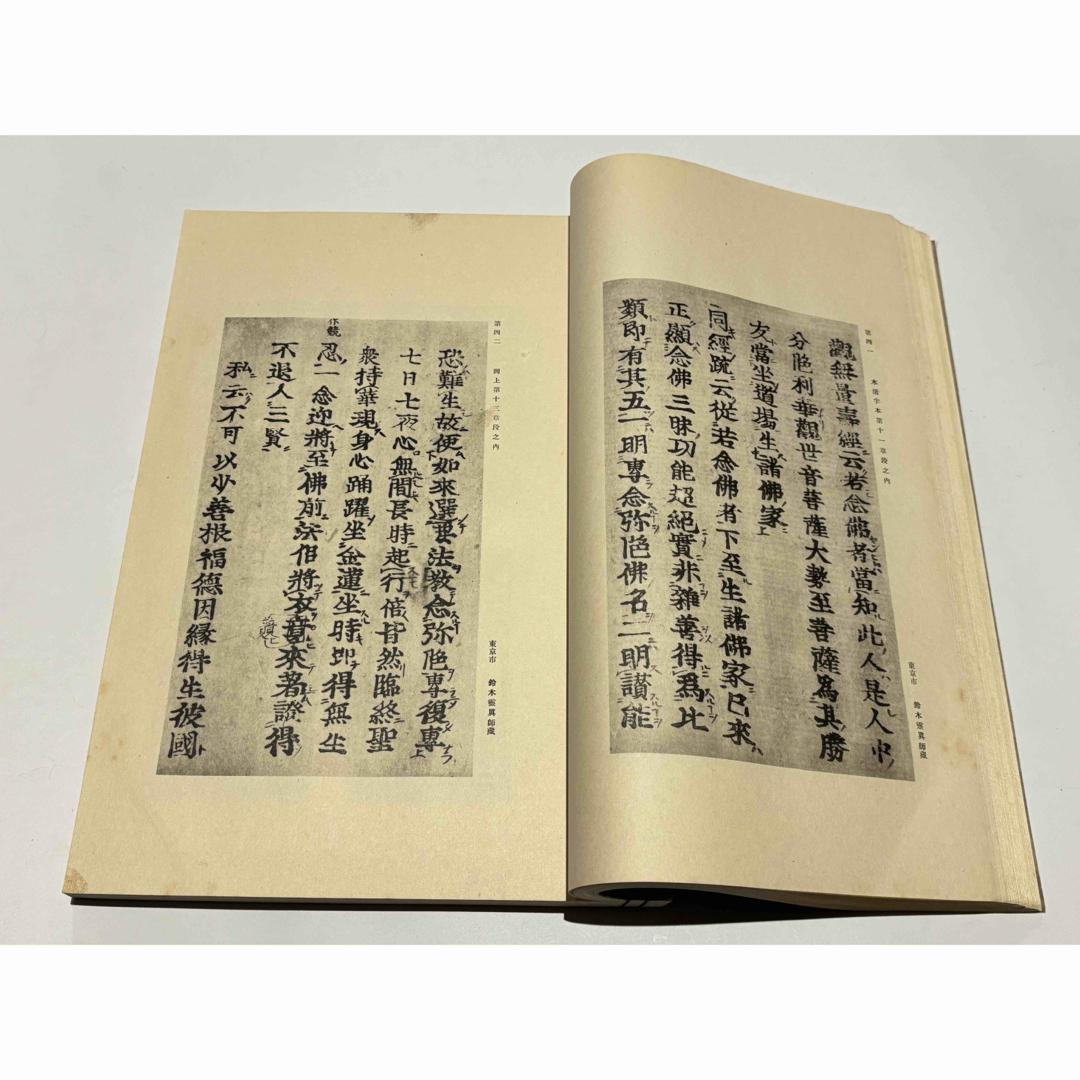 第四一　本清書本第十一章段之内
東京市　鈴木靈眞師藏
觀無量壽經云若念佛者當知此人是人中
分陀利華觀世音菩薩大勢至菩薩爲其勝
友當坐道場生諸佛家
同經疏云從若念佛者下至生諸佛家已來
正顯念佛三昧功能超絶實非雜善得爲比
類即有其五一明專念弥陀佛名二明讃能
第四二　同上第十三章段之内
東京市　鈴木靈眞師藏
恐難生故使如來選要法教念弥陀專復專
七日七夜心無間長時起行倍皆然臨終聖
衆持華現身心踊躍坐金蓮坐時即得無生
忍一念迎將至佛前法侶將衣竟來著證得
不退人三賢
私云不可以少善根福德因縁得生彼國